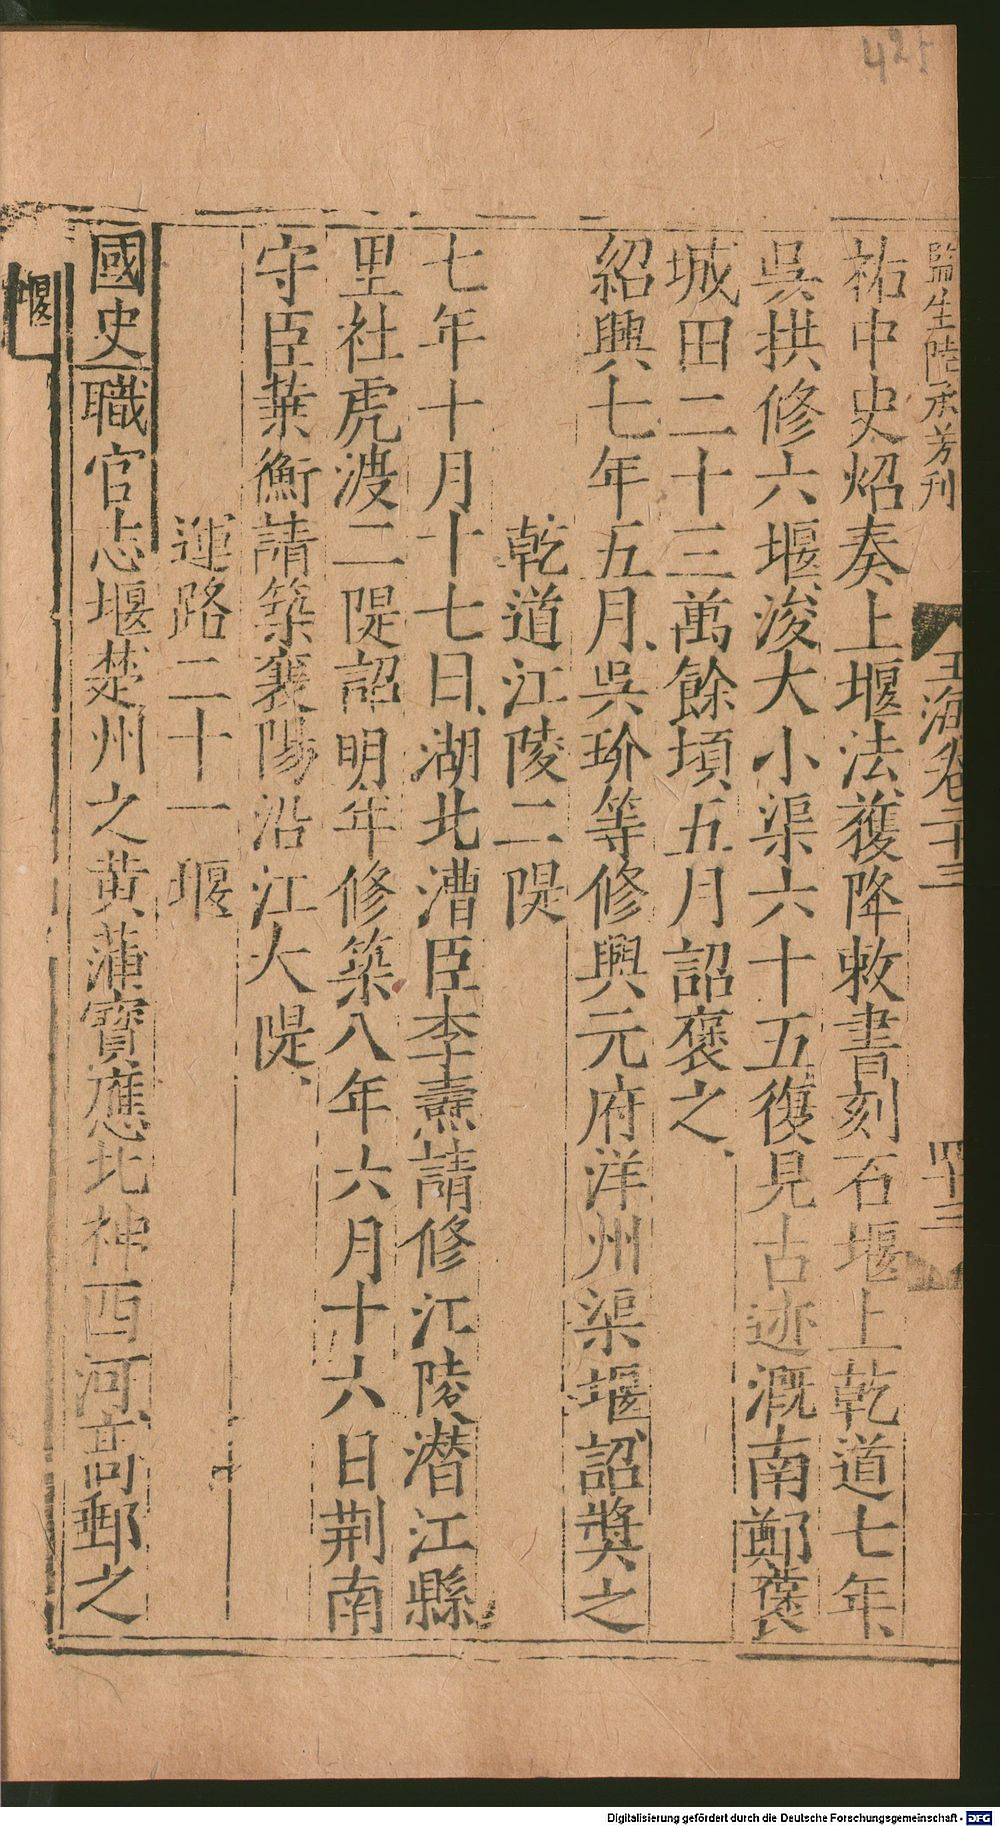 425
監生陸承芳刊
玉海卷二十三
四十三
祐中史炤奏上堰法獲降敕書刻石堰上乾道七年
吳拱修六堰浚大小渠六十五復見古迹溉南鄭褒
城田二十三萬餘頃五月詔褒之
紹興七年五月吳玠等修興元府洋州渠堰詔獎之
乾道江陵二隄
七年十月十七日湖北漕臣李燾請修江陵潛江縣
里社虎渡二隄詔明年修築八年六月十六日荆南
守臣葉衡請築襄陽沿江大隄
運路二十一堰
國史職官志堰楚州之黄蒲寳應北神西河高郵之
堰
Digitalisierung gefördert durch die Deutsche Forschungsgemeinschaft - DFG